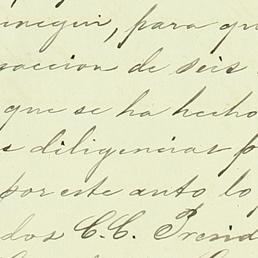 inegui, para qu
raccion de seis
que se ha hecho
s diligencias p
por este auto lo
dos C.C. Presid